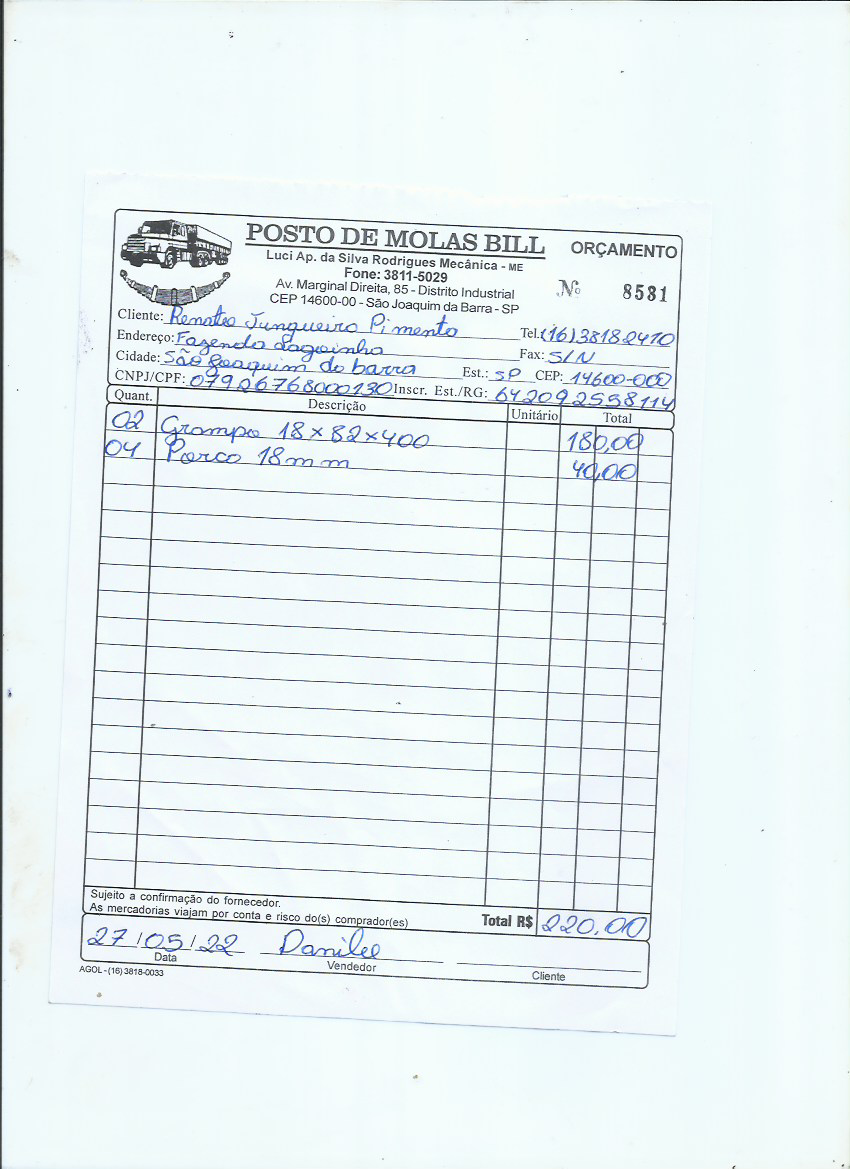 POSTO DE MOLAS BILL
ORÇAMENTO
Luci Ap. da Silva Rodrigues Mecânica - ME
Fone: 3811-5029
Av. Marginal Direita, 85 - Distrito Industrial
CEP 14600-00 - São Joaquim da Barra - SP
Nº 8581
Cliente: Renato Junqueira Pimenta Tel. (16) 38182410
Endereço: Fazenda Lagoinha Fax: S/N
Cidade: São Joaquim da barra Est.: SP CEP: 14600-000
CNPJ/CPF: 07926768000130 Inscr. Est./RG: 642092558114
Quant. Descrição Unitário Total
02 Grampo 18×82×400 180,00
04 Porco 18mm 40,00
Sujeito a confirmação do fornecedor.
As mercadorias viajam por conta e risco do(s) comprador(es)
Total R$ 220,00
27/05/22
Data Vendedor Cliente
AGOL - (16) 3818-0033